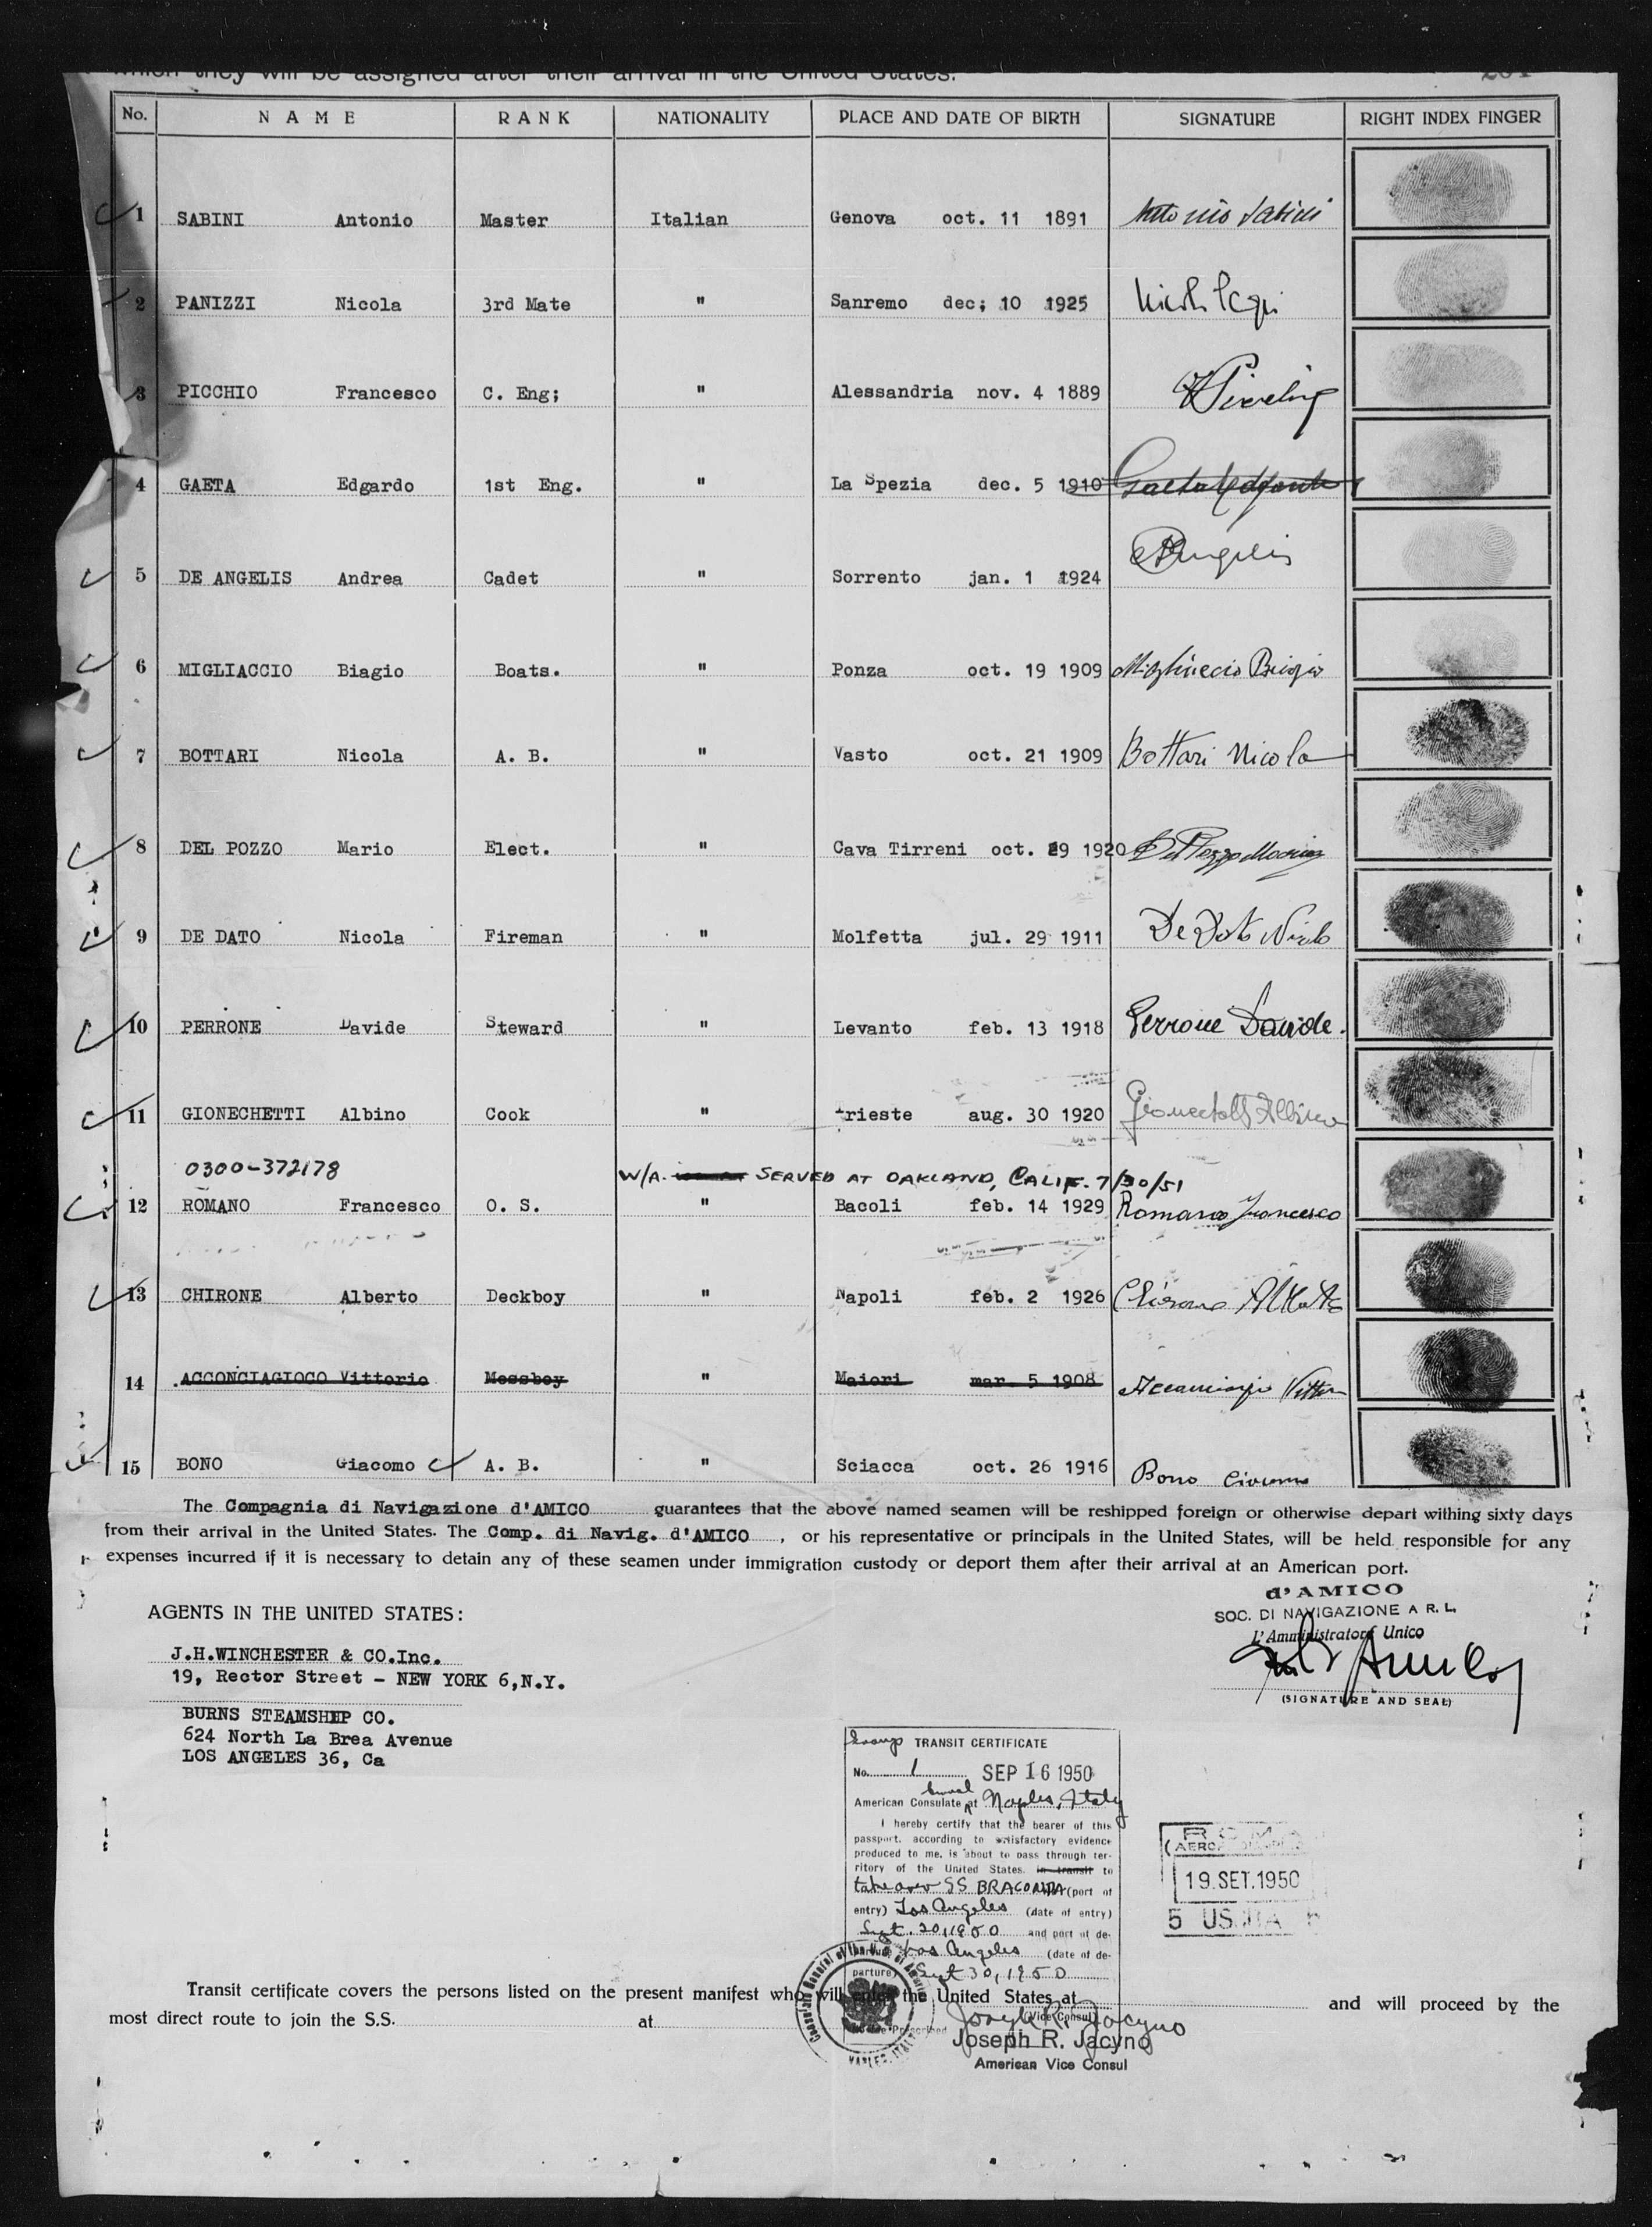 which they will be assigned after their arrival in the United States.
No. NAME RANK NATIONALITY PLACE AND DATE OF BIRTH SIGNATURE RIGHT INDEX FINGER
1 SABINI Antonio Master Italian Genova oct. 11 1891 Antonio Sabini
2 PANIZZI Nicola 3rd Mate " Sanremo dec; 10 1925
3 PICCHIO Francesco C. Eng; " Alessandria nov. 4 1889
4 GAETA Edgardo 1st Eng. " La Spezia dec. 5 1910 Gaeta Edgardo
5 DE ANGELIS Andrea Cadet " Sorrento jan. 1 1924
6 MIGLIACCIO Biagio Boats. " Ponza oct. 19 1909 Migliaccio Biagio
7 BOTTARI Nicola A. B. " Vasto oct. 21 1909 Bottari Nicola
8 DEL POZZO Mario Elect. " Cava Tirreni oct. 29 1920 Del Pozzo Mario
9 DE DATO Nicola Fireman " Molfetta jul. 29 1911 De Dato Nicola
10 PERRONE Davide Steward " Levanto feb. 13 1918 Perrone Davide.
11 GIONECHETTI Albino Cook " Trieste aug. 30 1920 Albino
0300-372178 W/A. SERVED AT OAKLAND, CALIF. 7/30/51
12 ROMANO Francesco O. S. " Bacoli feb. 14 1929 Romano Francesco
13 CHIRONE Alberto Deckboy " Napoli feb. 2 1926 Chirone Alberto
14 ACCONCIAGIOCO Vittorio Messboy " Maiori mar. 5 1908
15 BONO Giacomo A. B. " Sciacca oct. 26 1916 Bono Giacomo
The Compagnia di Navigazione d'AMICO guarantees that the above named seamen will be reshipped foreign or otherwise depart withing sixty days
from their arrival in the United States. The Comp. di Navig. d'AMICO, or his representative or principals in the United States, will be held responsible for any
expenses incurred if it is necessary to detain any of these seamen under immigration custody or deport them after their arrival at an American port.
d'AMICO
SOC. DI NAVIGAZIONE A R. L.
L'Amministratore Unico
(SIGNATURE AND SEAL)
AGENTS IN THE UNITED STATES:
J.H.WINCHESTER & CO.Inc.
19, Rector Street - NEW YORK 6,N.Y.
BURNS STEAMSHIP CO.
624 North La Brea Avenue
LOS ANGELES 36, Ca
Group TRANSIT CERTIFICATE
No. 1 SEP 16 1950
American Consulate General at Naples, Italy
I hereby certify that the bearer of this
passport, according to satisfactory evidence
produced to me, is about to pass through ter-
ritory of the United States in transit to
take over SS BRACONDA (port of
entry) Los Angeles (date of entry)
Sept. 20, 1950 and port of de-
parture Los Angeles (date of de-
parture) Sept 30, 1950
ROMA
19.SET.1950
5 USCITA
Transit certificate covers the persons listed on the present manifest who will enter the United States at and will proceed by the
most direct route to join the S.S. at
Joseph R. Jacyno
(Vice Consul)
Joseph R. Jacyno
American Vice Consul